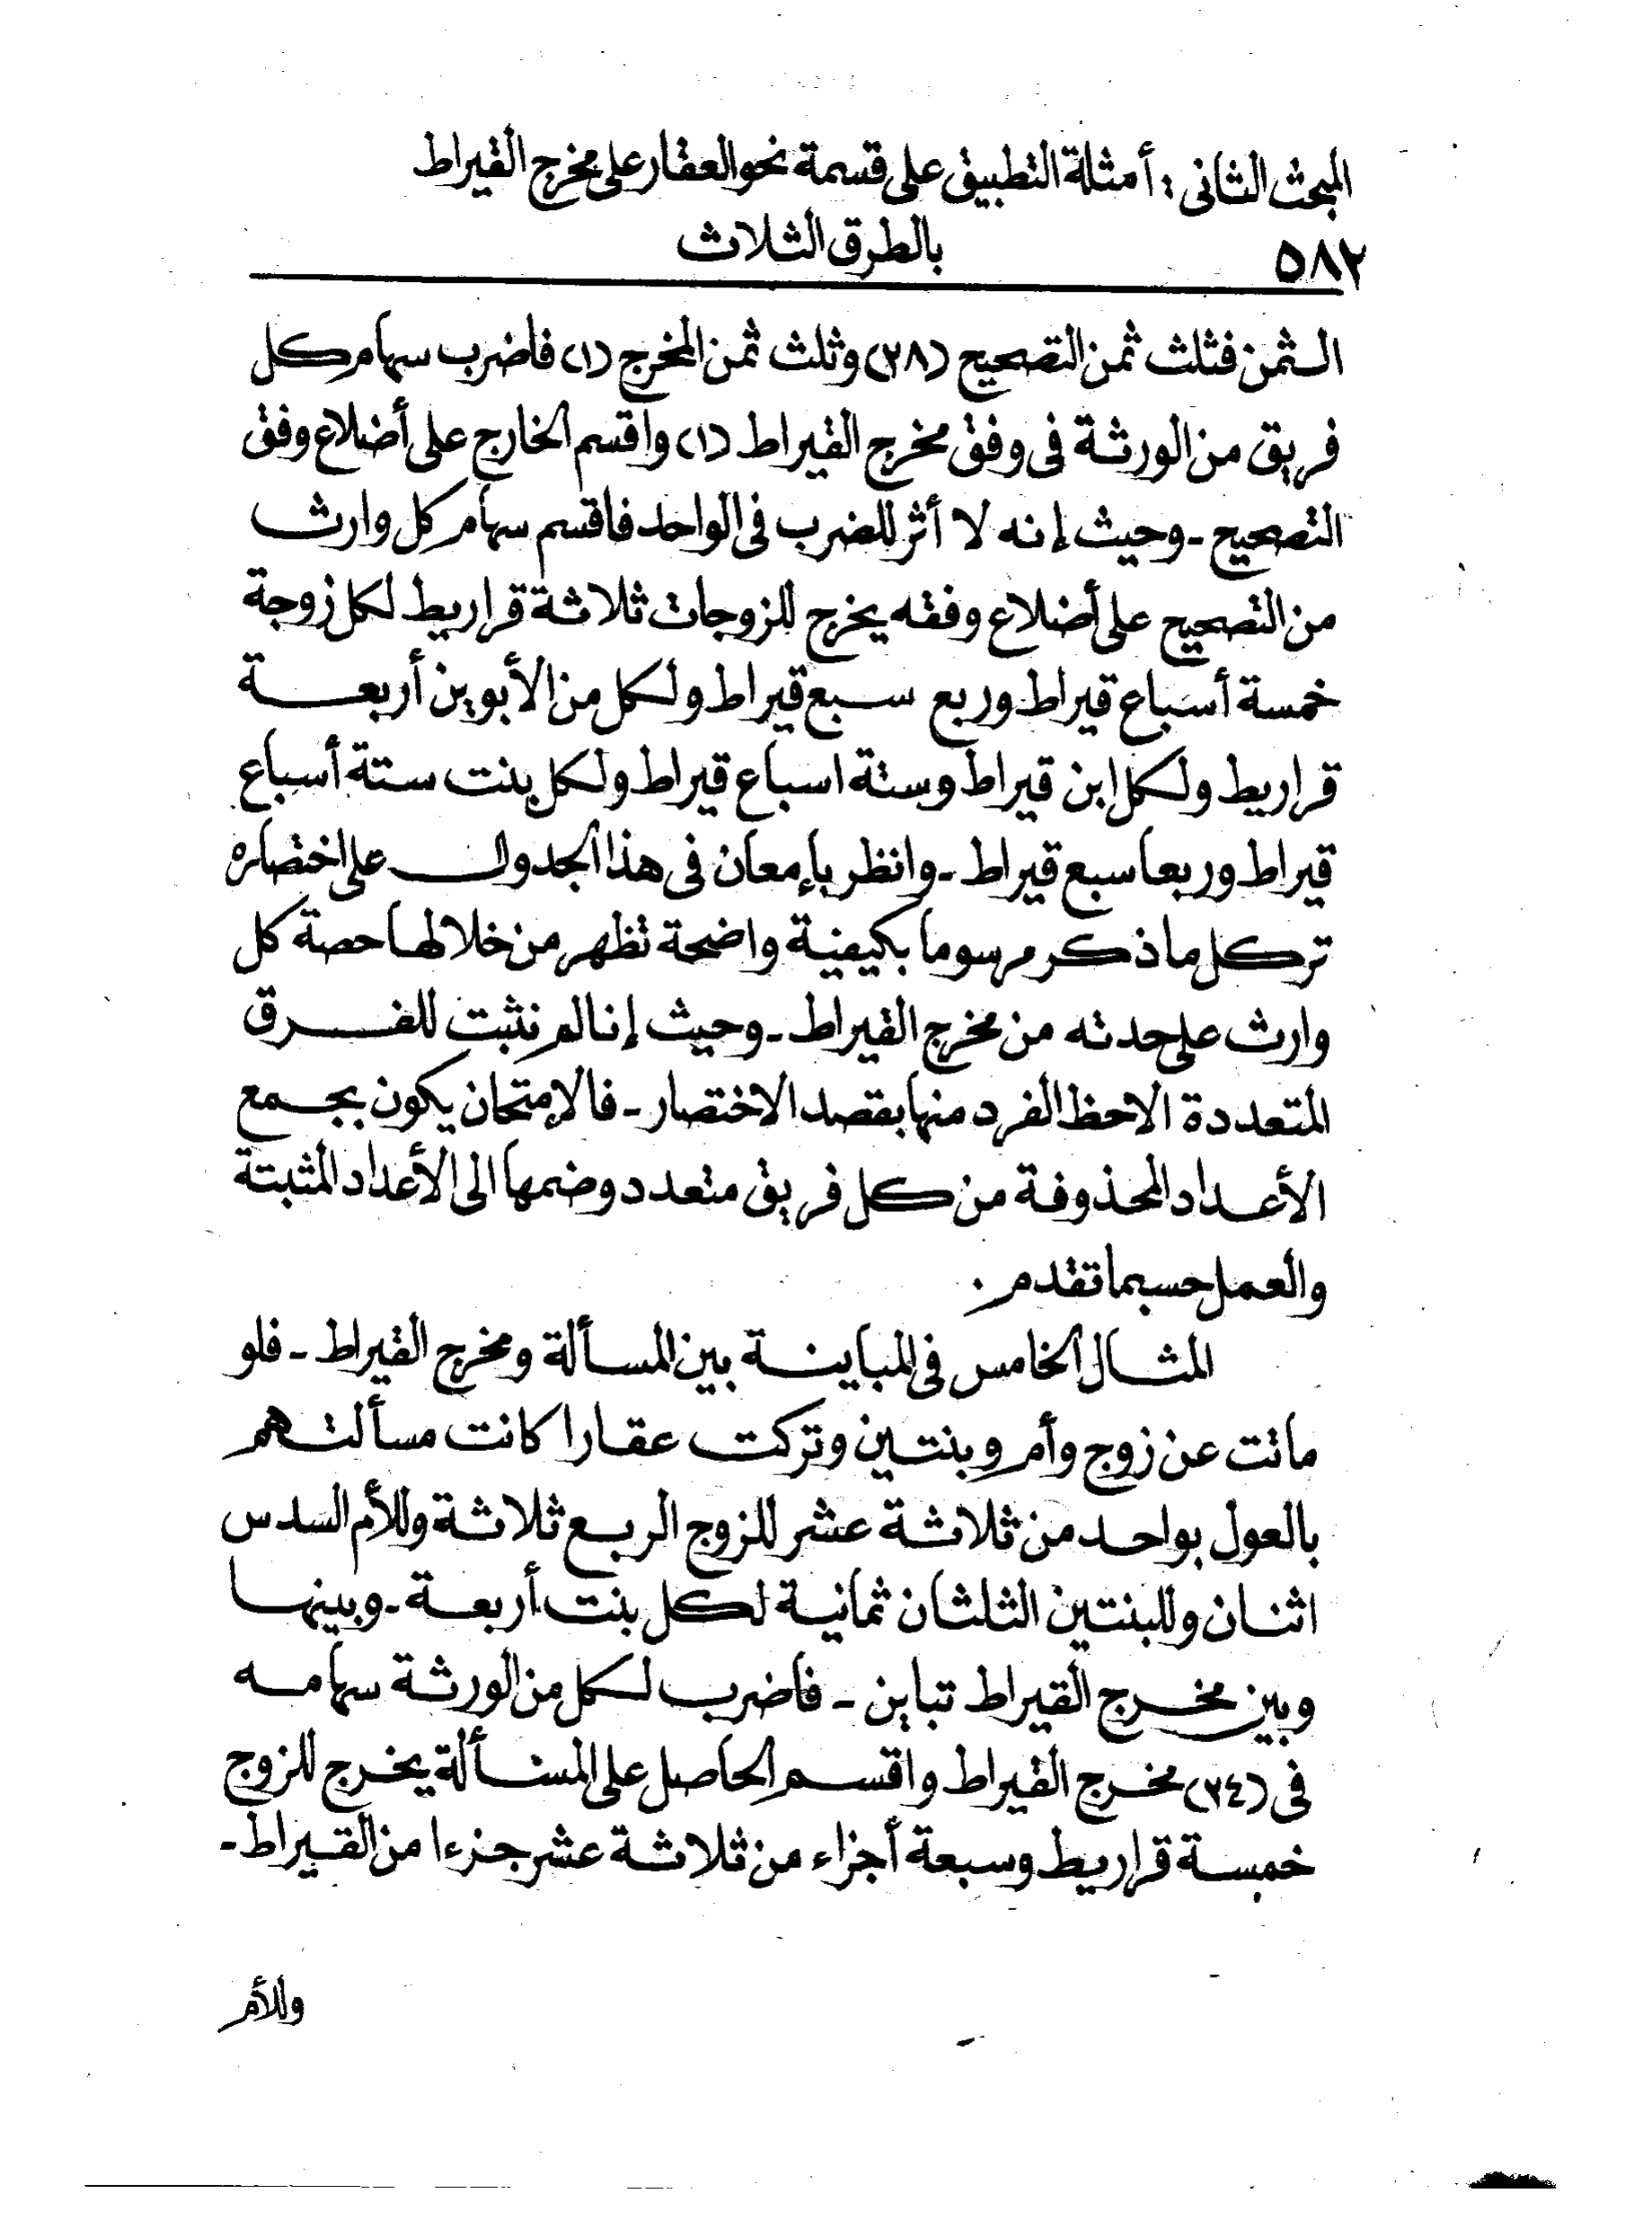 المبحث الثانى : أمثلة التطبيق على قسمة نحو العقار على مخرج القيراط
بالطرق الثلاث
٥٨٢
الـثمن فثلث ثمن التصحيح (٢٨) وثلث ثمن المخرج (١) فاضرب سهام كل
فريق من الورثة فى وفق مخرج القيراط (١) واقسم الخارج على أضلاع وفق
التصحيح - وحيث إنه لا أثر للضرب فى الواحد فاقسم سهام كل وارث
من التصحيح على أضلاع وفقه يخرج للزوجات ثلاثة قراريط لكل زوجة
خمسة أسباع قيراط وربع سبع قيراط ولكل من الأبوين أربعة
قراريط ولكل ابن قيراط وستة اسباع قيراط ولكل بنت ستة أسباع
قيراط وربعا سبع قيراط - وانظر بإمعان فى هذا الجدول على اختصاره
تر كل ما ذكر مرسوما بكيفية واضحة تظهر من خلالها حصة كل
وارث على حدته من مخرج القيراط - وحيث إنا لم نثبت للفرق
المتعددة الاحظ الفرد منها بقصد الاختصار - فالإمتحان يكون بجمع
الأعداد المحذوفة من كل فريق متعدد وضمها الى الأعداد المثبتة
والعمل حسبما تقدم .
المثال الخامس فى المباينة بين المسألة ومخرج القيراط - فلو
ماتت عن زوج وأم وبنتين وتركت عقارا كانت مسألتهم
بالعول بواحد من ثلاثة عشر للزوج الربع ثلاثة وللأم السدس
اثنان وللبنتين الثلثان ثمانية لكل بنت أربعة - وبينها
وبين مخرج القيراط تباين - فاضرب لكل من الورثة سهامه
فى (٢٤) مخرج القيراط واقسم الحاصل على المسألة يخرج للزوج
خمسة قراريط وسبعة أجزاء من ثلاثة عشر جزءا من القيراط -
وللأم